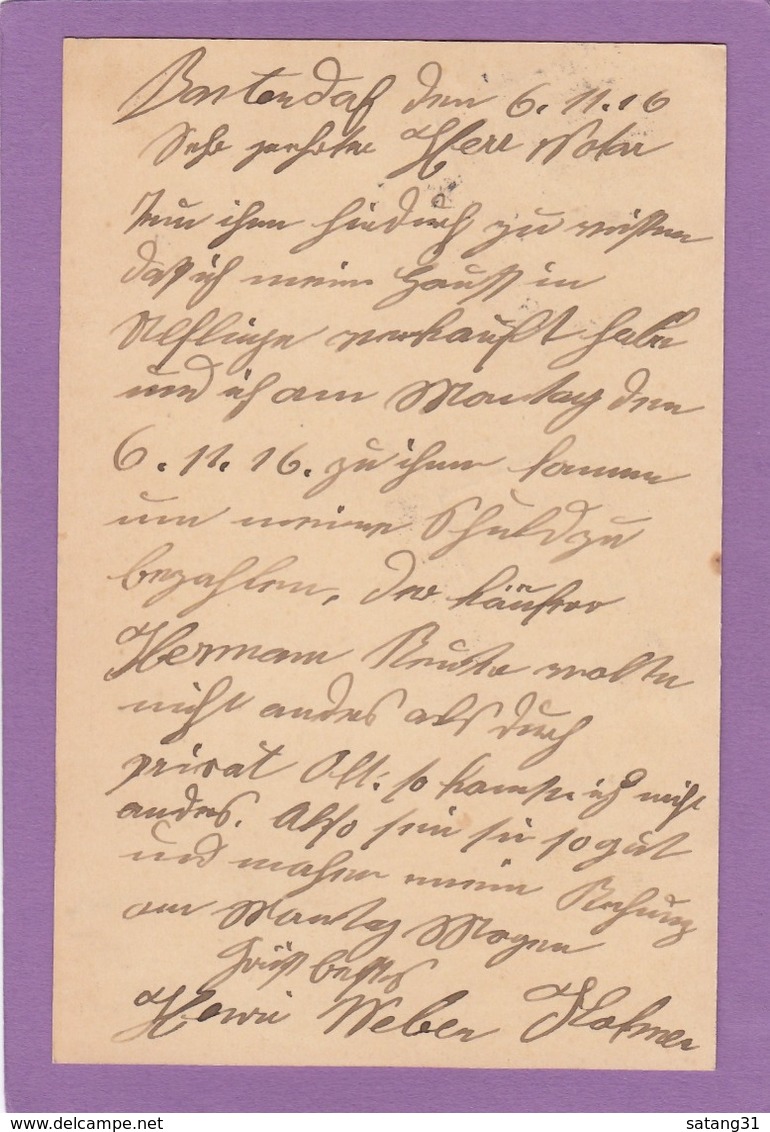 Bartendorf den 6.11.16
Sehr geehrter Herr Notar
Tuu ihnen hiedurch zu wissen
daß ich mein Hauss in
verkauft habe
und ich am Montag den
6.11.16. zu ihnen komme
um meine Schuld zu
bezahlen, der käufer
Hermann wollte
nicht andes als durch
privat Akt: so konnte ich nicht
andes. Also sein sie so gut
und mahen meine Rechnung
am Montag Morgen
Grüst bestes
Henri Weber
satang31
www.delcampe.net